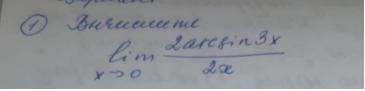 ① Вычислите
lim 2arcsin3x
x→0 2x